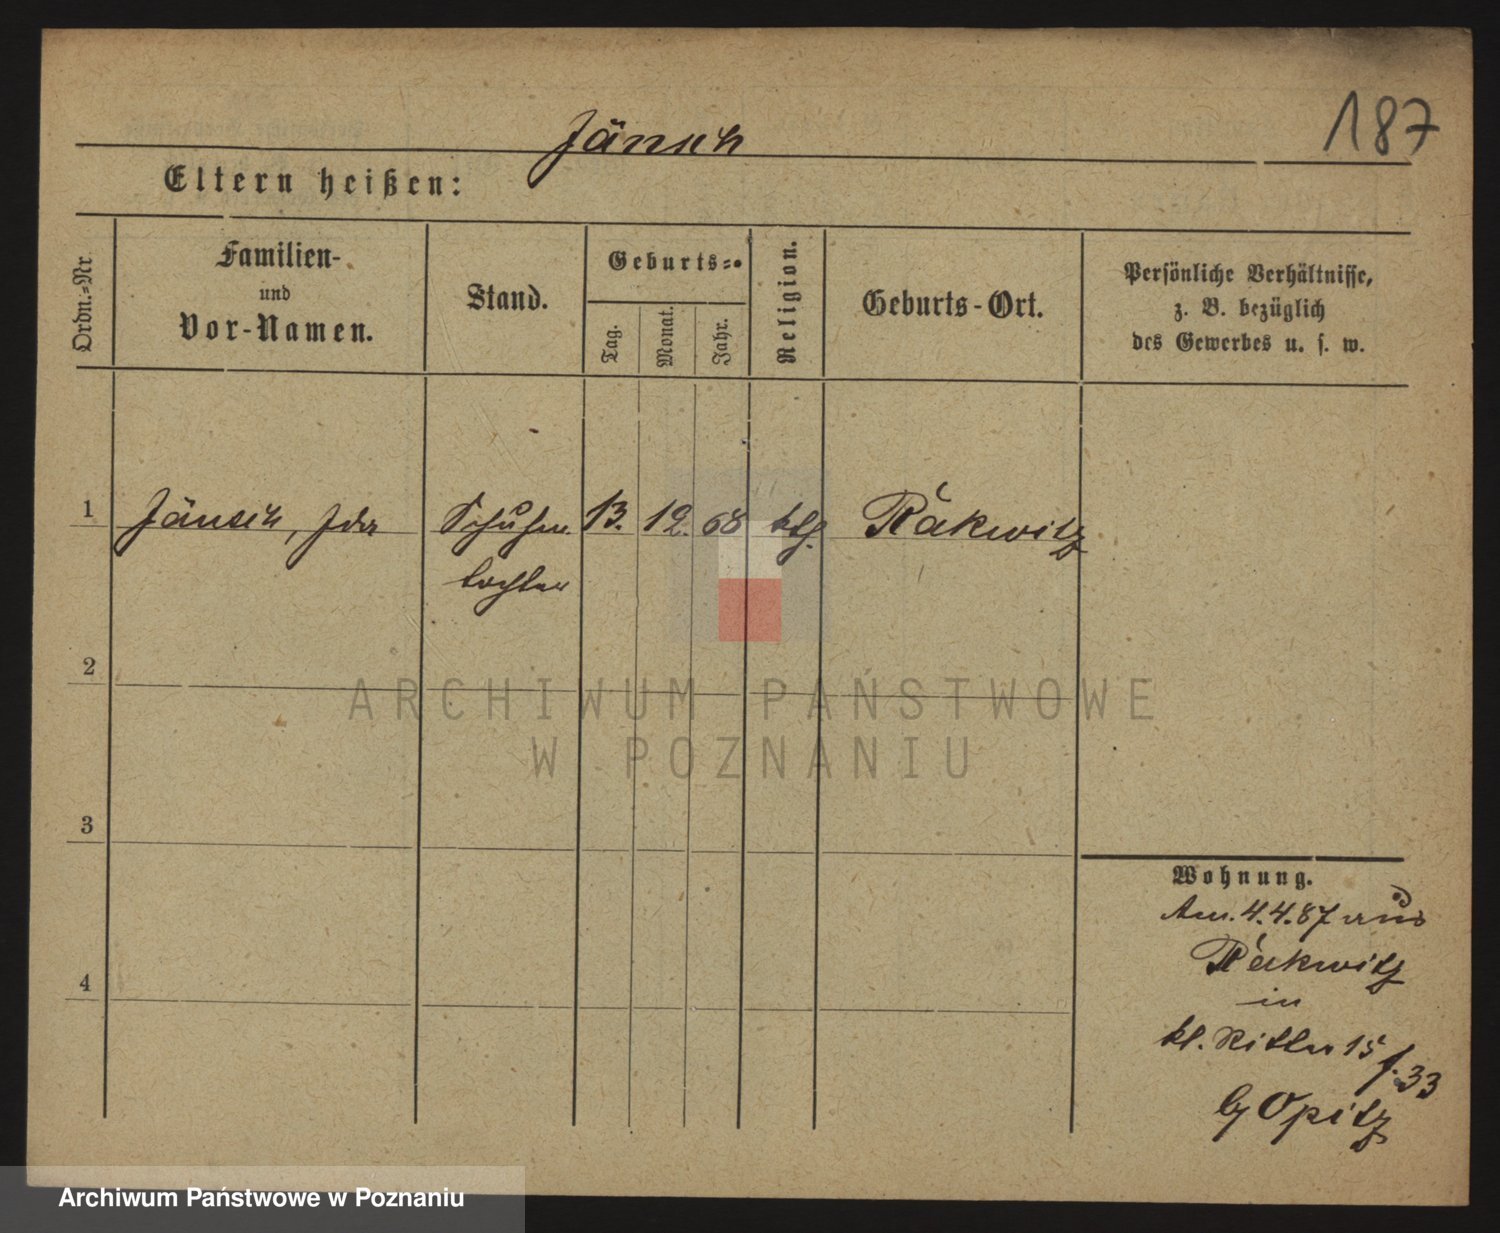 187
Jänsch
Eltern heißen:
Ordn.=Nr.
Familien-
und
Vor-Namen.
Stand.
Geburts=
Tag.
Monat.
Jahr.
Religion.
Geburts-Ort.
Persönliche Verhältnisse,
z. B. bezüglich
des Gewerbes u. s. w.
1
Jänsch, Ida
Schuhm.
tochter
13.
12.
68
kth.
Rakwitz
2
3
4
ARCHIWUM PAŃSTWOWE
W POZNANIU
Wohnung.
4.4.87 aus
Rakwitz
in
kl. Ritter 15
f. 33
Opitz
Archiwum Państwowe w Poznaniu